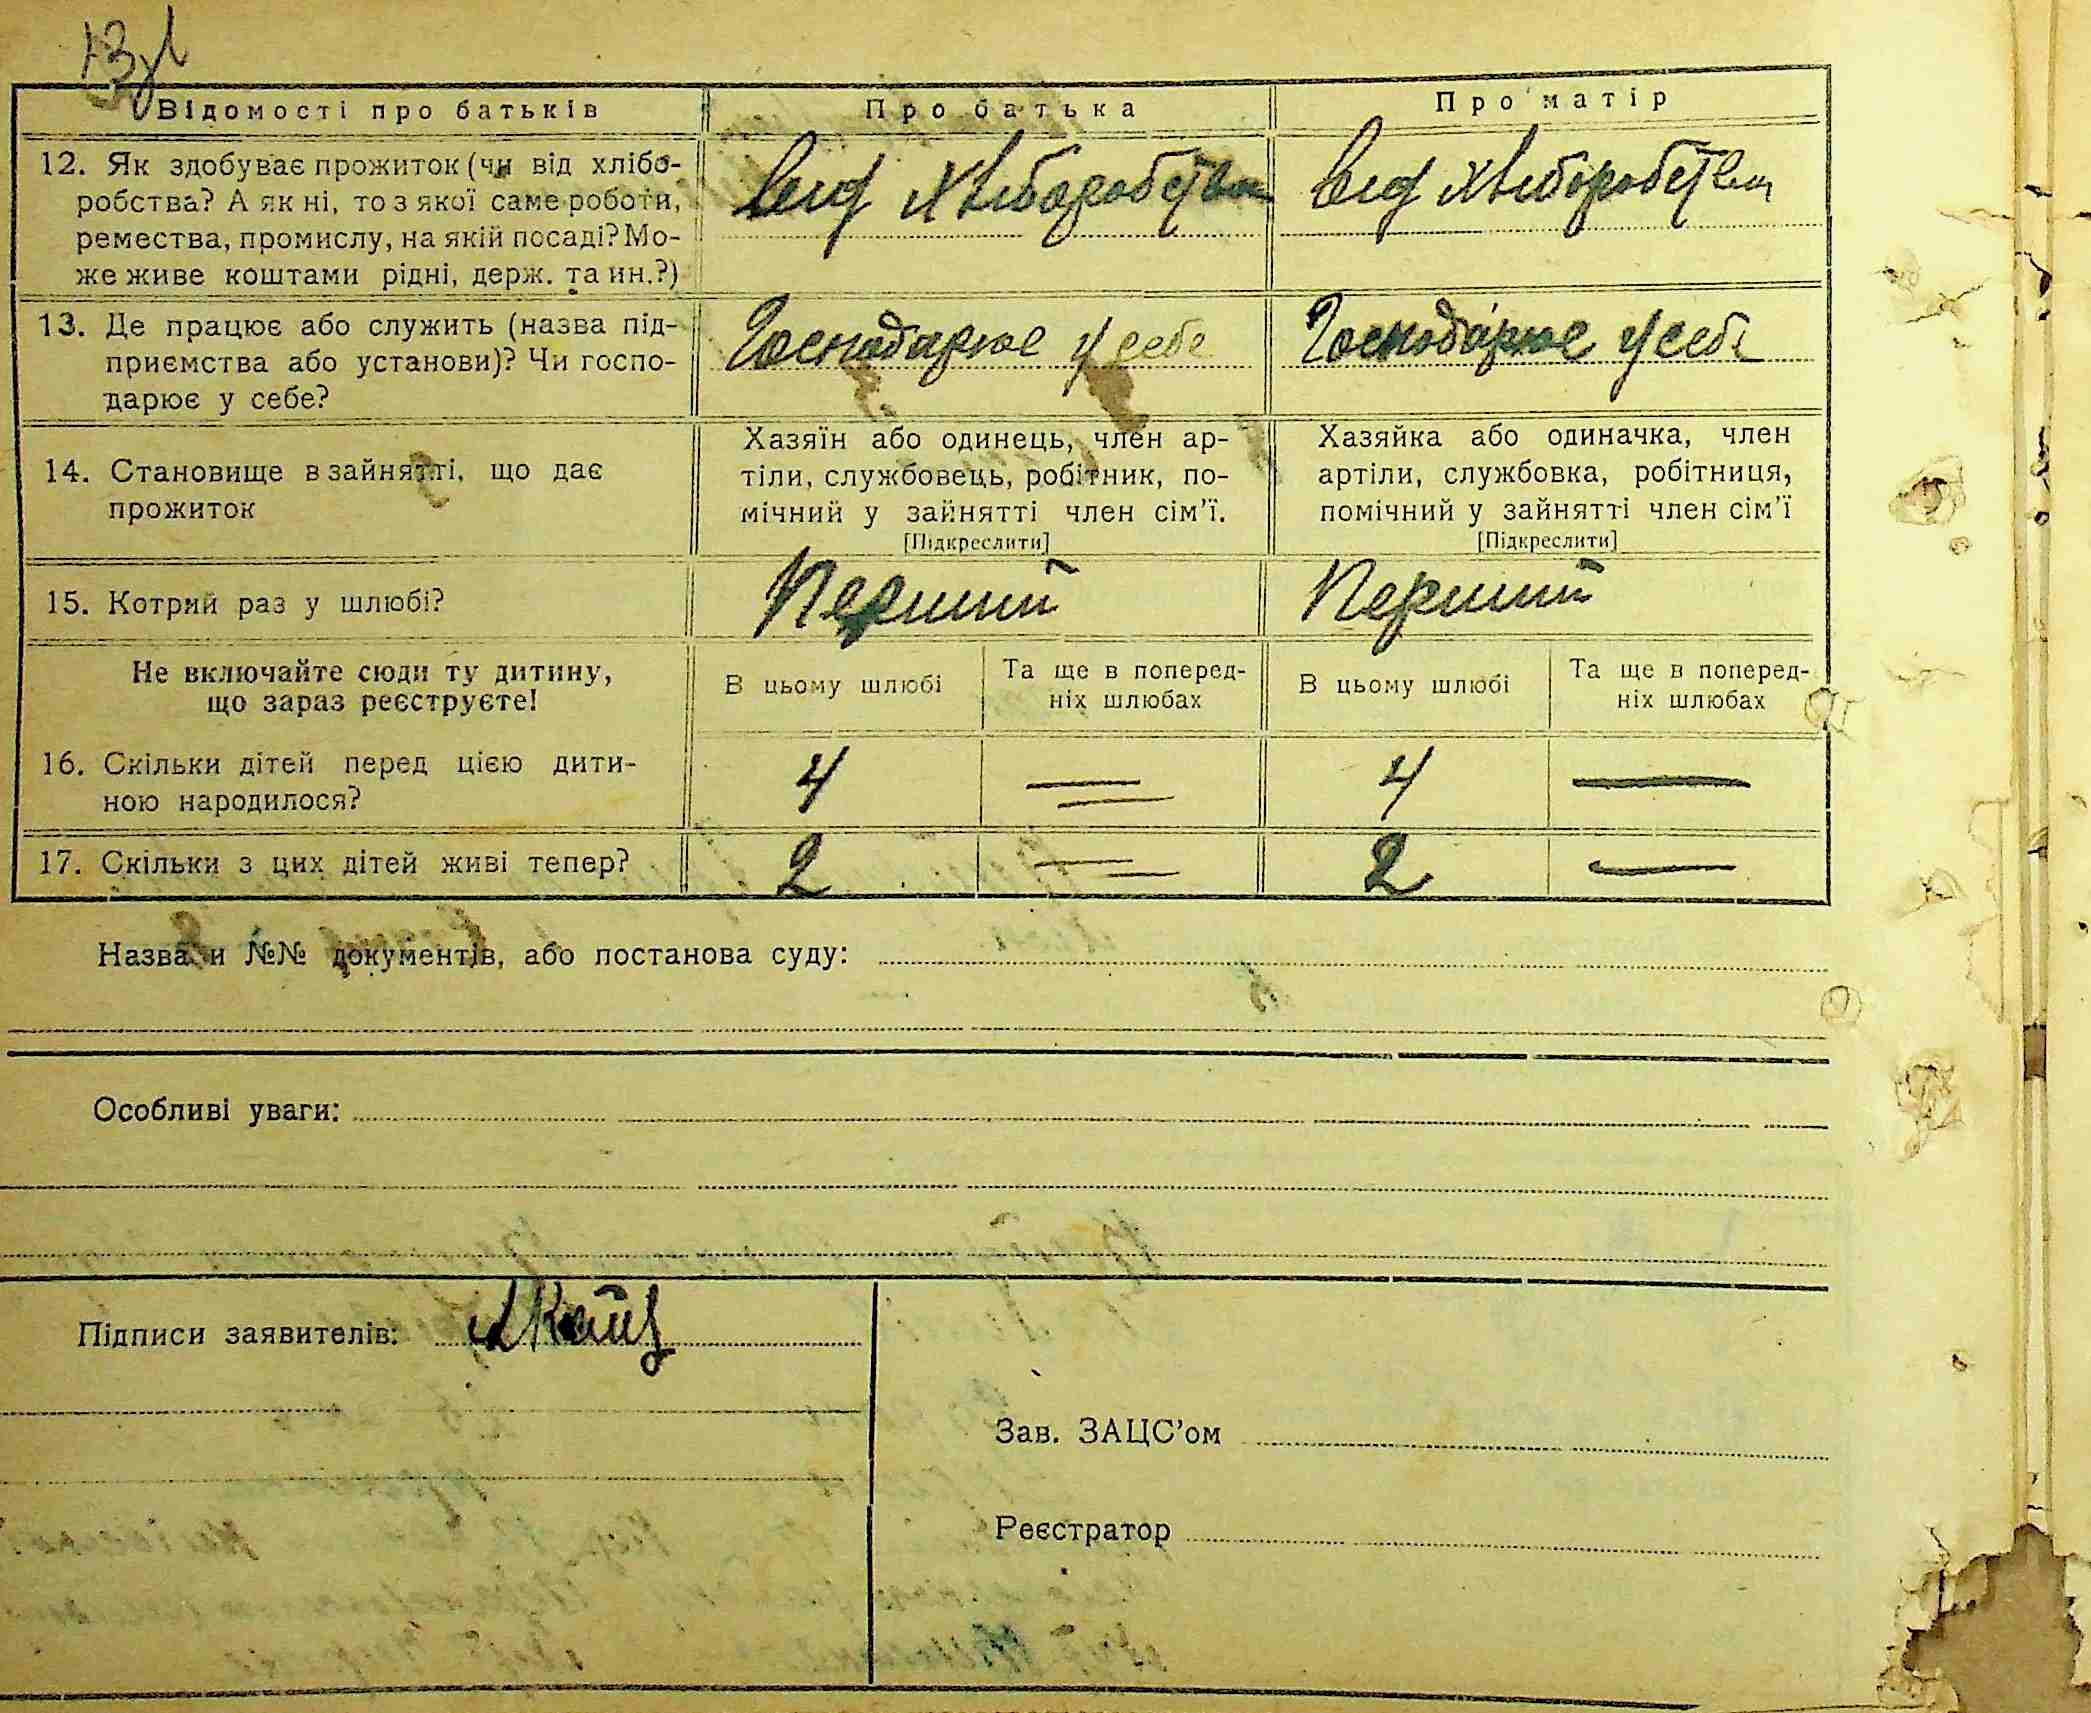 Відомості про батьків
Про батька
Про матір
12. Як здобуває прожиток (чи від хлібо-
робства? А як ні, то з якої саме роботи,
ремества, промислу, на якій посаді? Мо-
же живе коштами рідні, держ. та ин.?)
від хліборобства
від хліборобства
13. Де працює або служить (назва під-
приємства або установи)? Чи госпо-
дарює у себе?
Господарює у себе
Господарює у себе
14. Становище в зайнятті, що дає
прожиток
Хазяїн або одинець, член ар-
тіли, службовець, робітник, по-
мічний у зайнятті член сім'ї.
[Підкреслити]
Хазяйка або одиначка, член
артіли, службовка, робітниця,
помічний у зайнятті член сім'ї
[Підкреслити]
15. Котрий раз у шлюбі?
Перший
Перший
Не включайте сюди ту дитину,
що зараз реєструєте!
В цьому шлюбі
Та ще в поперед-
ніх шлюбах
В цьому шлюбі
Та ще в поперед-
ніх шлюбах
16. Скільки дітей перед цією дити-
ною народилося?
4
—
4
—
17. Скільки з цих дітей живі тепер?
2
—
2
—
Назва и №№ документів, або постанова суду:
Особливі уваги:
Підписи заявителів:
Зав. ЗАЦС'ом
Реєстратор